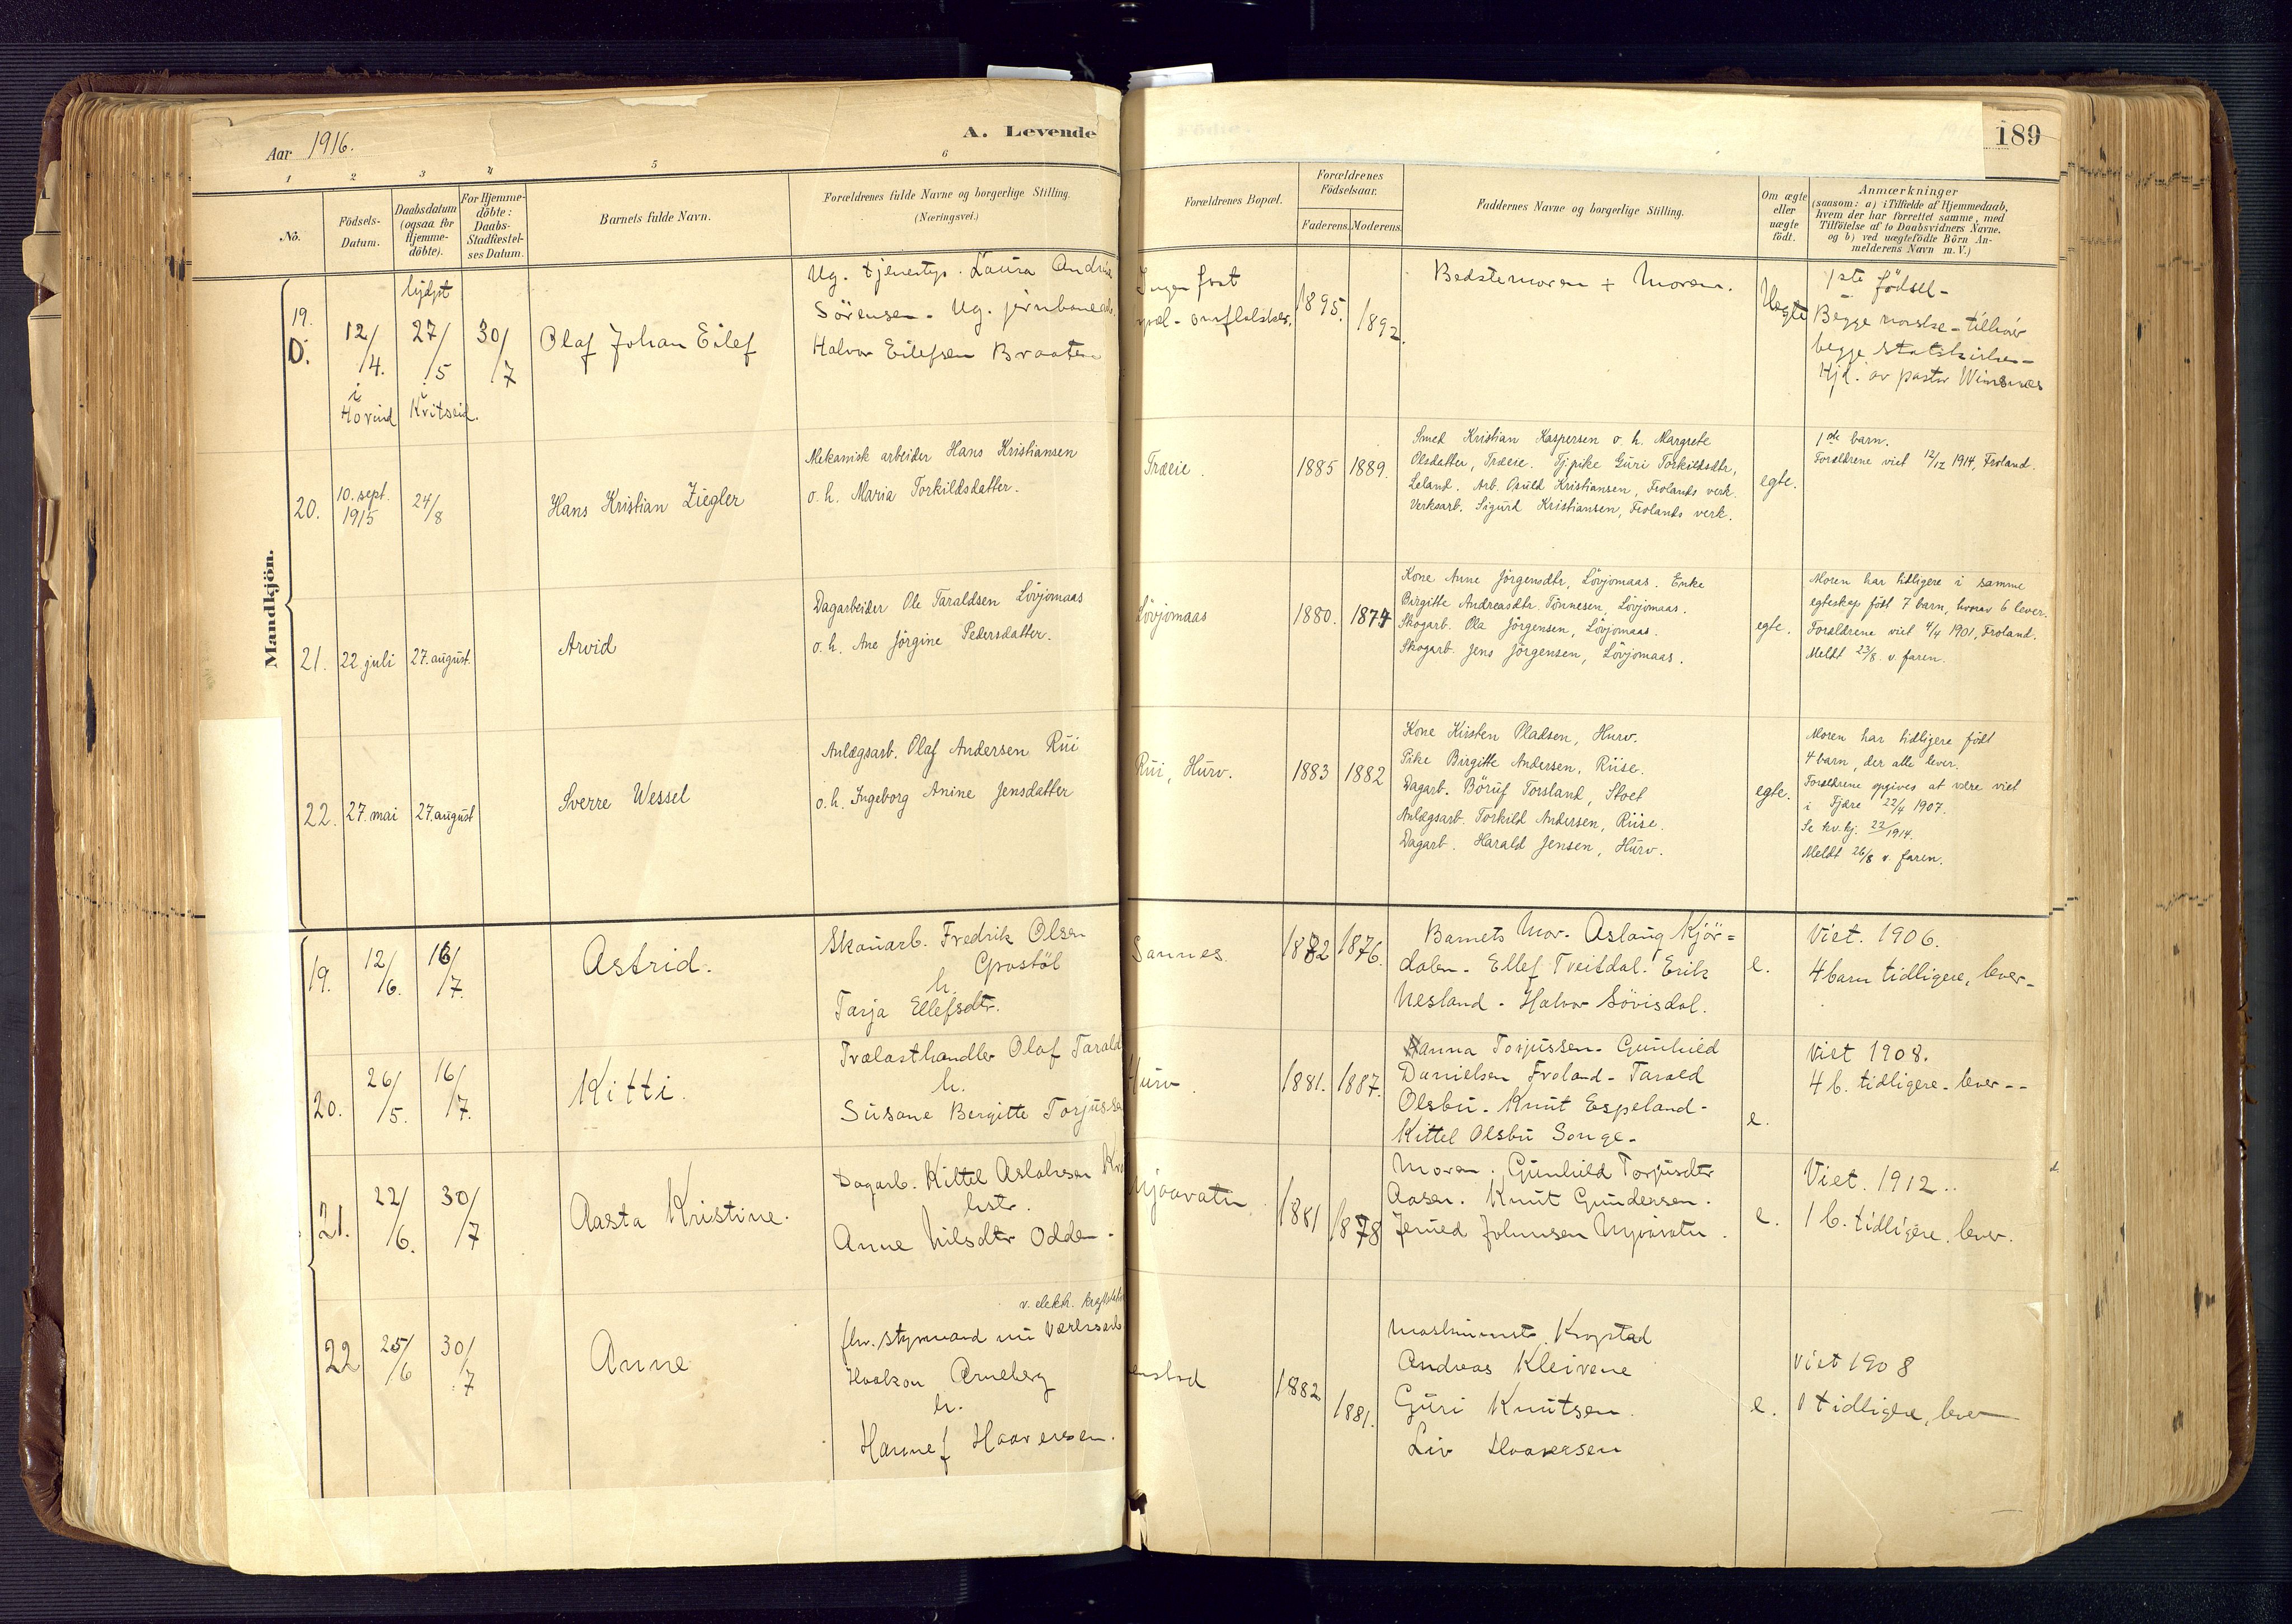 Aar 1916.
A. Levende
189
1 2 3 4 5 6
No.
Födsels-
Datum.
Daabsdatum
(ogsaa for
Hjemme-
döbte).
For Hjemme-
döbte:
Daabs-
Stadfæstel-
ses Datum.
Barnets fulde Navn.
Forældrenes fulde Navne og borgerlige Stilling.
(Næringsvei.)
Forældrenes Bopæl.
Forældrenes
Födselsaar.
Faderens. Moderens.
Faddernes Navne og borgerlige Stilling.
Om ægte
eller
uægte
födt.
Anmærkninger
(saasom: a) i Tilfælde af Hjemmedaab,
hvem der har forrettet samme, med
Tilföielse af to Daabsvidners Navne,
og b) ved uægtefödte Börn An-
melderens Navn m. V.)
Mandkjön.
19.
12/
/4.
i
Hovind
hjdpt
27/
/5
i
Kvitseid.
30/
/7
Olaf Johan Eilef
Ug. tjenestep. Laura Andrine
Sörensen. Ug. jernbanearb.
Halvor Eilefsen Braaten
Ingen fast
1895. 1892.
Bedstemoren + Moren.
Uegte
1ste födsel-
Begge norske - tilhör
begge statskirken-
Hjd. av pastor Winsnæs
20.
10. sept.
1915
24/
/8
Hans Kristian Ziegler
Mekanisk arbeider Hans Kristiansen
o. h. Maria Torkildsdatter.
Træeie.
1885 1889.
Smed Kristian Kaspersen o. h. Margrete
Olsdatter, Træeie. Tj.pike Guri Torkildsdtr,
Leland. Arb. Osuld Kristiansen, Frolands verk.
Verksarb. Sigurd Kristiansen, Frolands verk.
egte.
1ste barn.
Forældrene viet 12/12 1914, Froland.
21.
22. juli
27. august.
Arvid
Dagarbeider Ole Taraldsen Lövjomaas
o. h. Ane Jörgine Pedersdatter.
Lövjomaas
1880. 1874
Kone Anne Jörgensdtr, Lövjomaas. Enke
Birgitte Andreasdtr. Tönnesen, Lövjomaas.
Skogarb. Ola Jörgensen, Lövjomaas.
Skogarb. Jens Jörgensen, Lövjomaas.
egte.
Moren har tidligere i samme
egteskap födt 7 barn, hvorav 6 lever.
Forældrene viet 4/4 1901, Froland.
Meldt 23/8. v. faren.
22.
27. mai
27. august
Sverre Wessel
Anlægsarb. Olaf Andersen Rui
o. h. Ingeborg Anine Jensdatter
Rui, Hurv.
1883 1882
Kone Kirsten Pladsen, Hurv.
Pike Birgitte Andersen, Riise.
Dagarb. Böruf Torsland, Stoet
Anlægsarb. Torkild Andersen, Riise.
Dagarb. Harald Jensen, Hurv.
egte.
Moren har tidligere födt
4 barn, der alle lever.
Forældrene opgives at være viet
i Tjære 22/4 1907.
Se kv.kj. 22/1914.
Meldt 26/8 v. faren.
19.
12/
/6.
16/
/7.
Astrid.
Skauarb. Fredrik Olsen
h.
Tarja Ellefsdtr.
Sannes.
1882 1876.
Barnets Mor. Aslaug Kjör=
dalen. Ellef Tveitdal. Erik
Nesland. Halvor Sövisdal.
e.
Viet. 1906.
4 barn tidligere, lever-
20.
26/
/5.
16/
/7.
Kitti.
Trælasthandler Olaf Tarald
h.
Susane Bergitte Torjussen
Hurv.
1881. 1887.
Hanna Torjussen. Gunhild
Danielsen Froland. Tarald
Olsbu. Knut Espeland-
Kittel Olsbu Songe.
e.
Viet 1908.
4 b. tidligere. lever--
21.
22/
/6.
30/
/7
Aasta Kristine.
Dagarb. Kittel Aslaksen
hstr.
Anne Nilsdtr Odden.
Mjaavatn
1881 1878
Moren. Gunhild Torjusdtr
Aasen. Knut Gundersen.
Jerued Johnsen Mjaavatn.
e.
Viet. 1912..
1 b. tidligere, lever.
22
25/
/6
30/
/7
Anne
v. elektr. kraftstation
fhv. styrmand nu Værksarb
Haakon Arneberg
h.
Hanna f Haaversen.
1882 1881.
Maskinmstr. Kogstad
Andreas Kleivene
Guri Knutsen.
Liv Haaversen
e.
Viet 1908
1 tidligere, lever